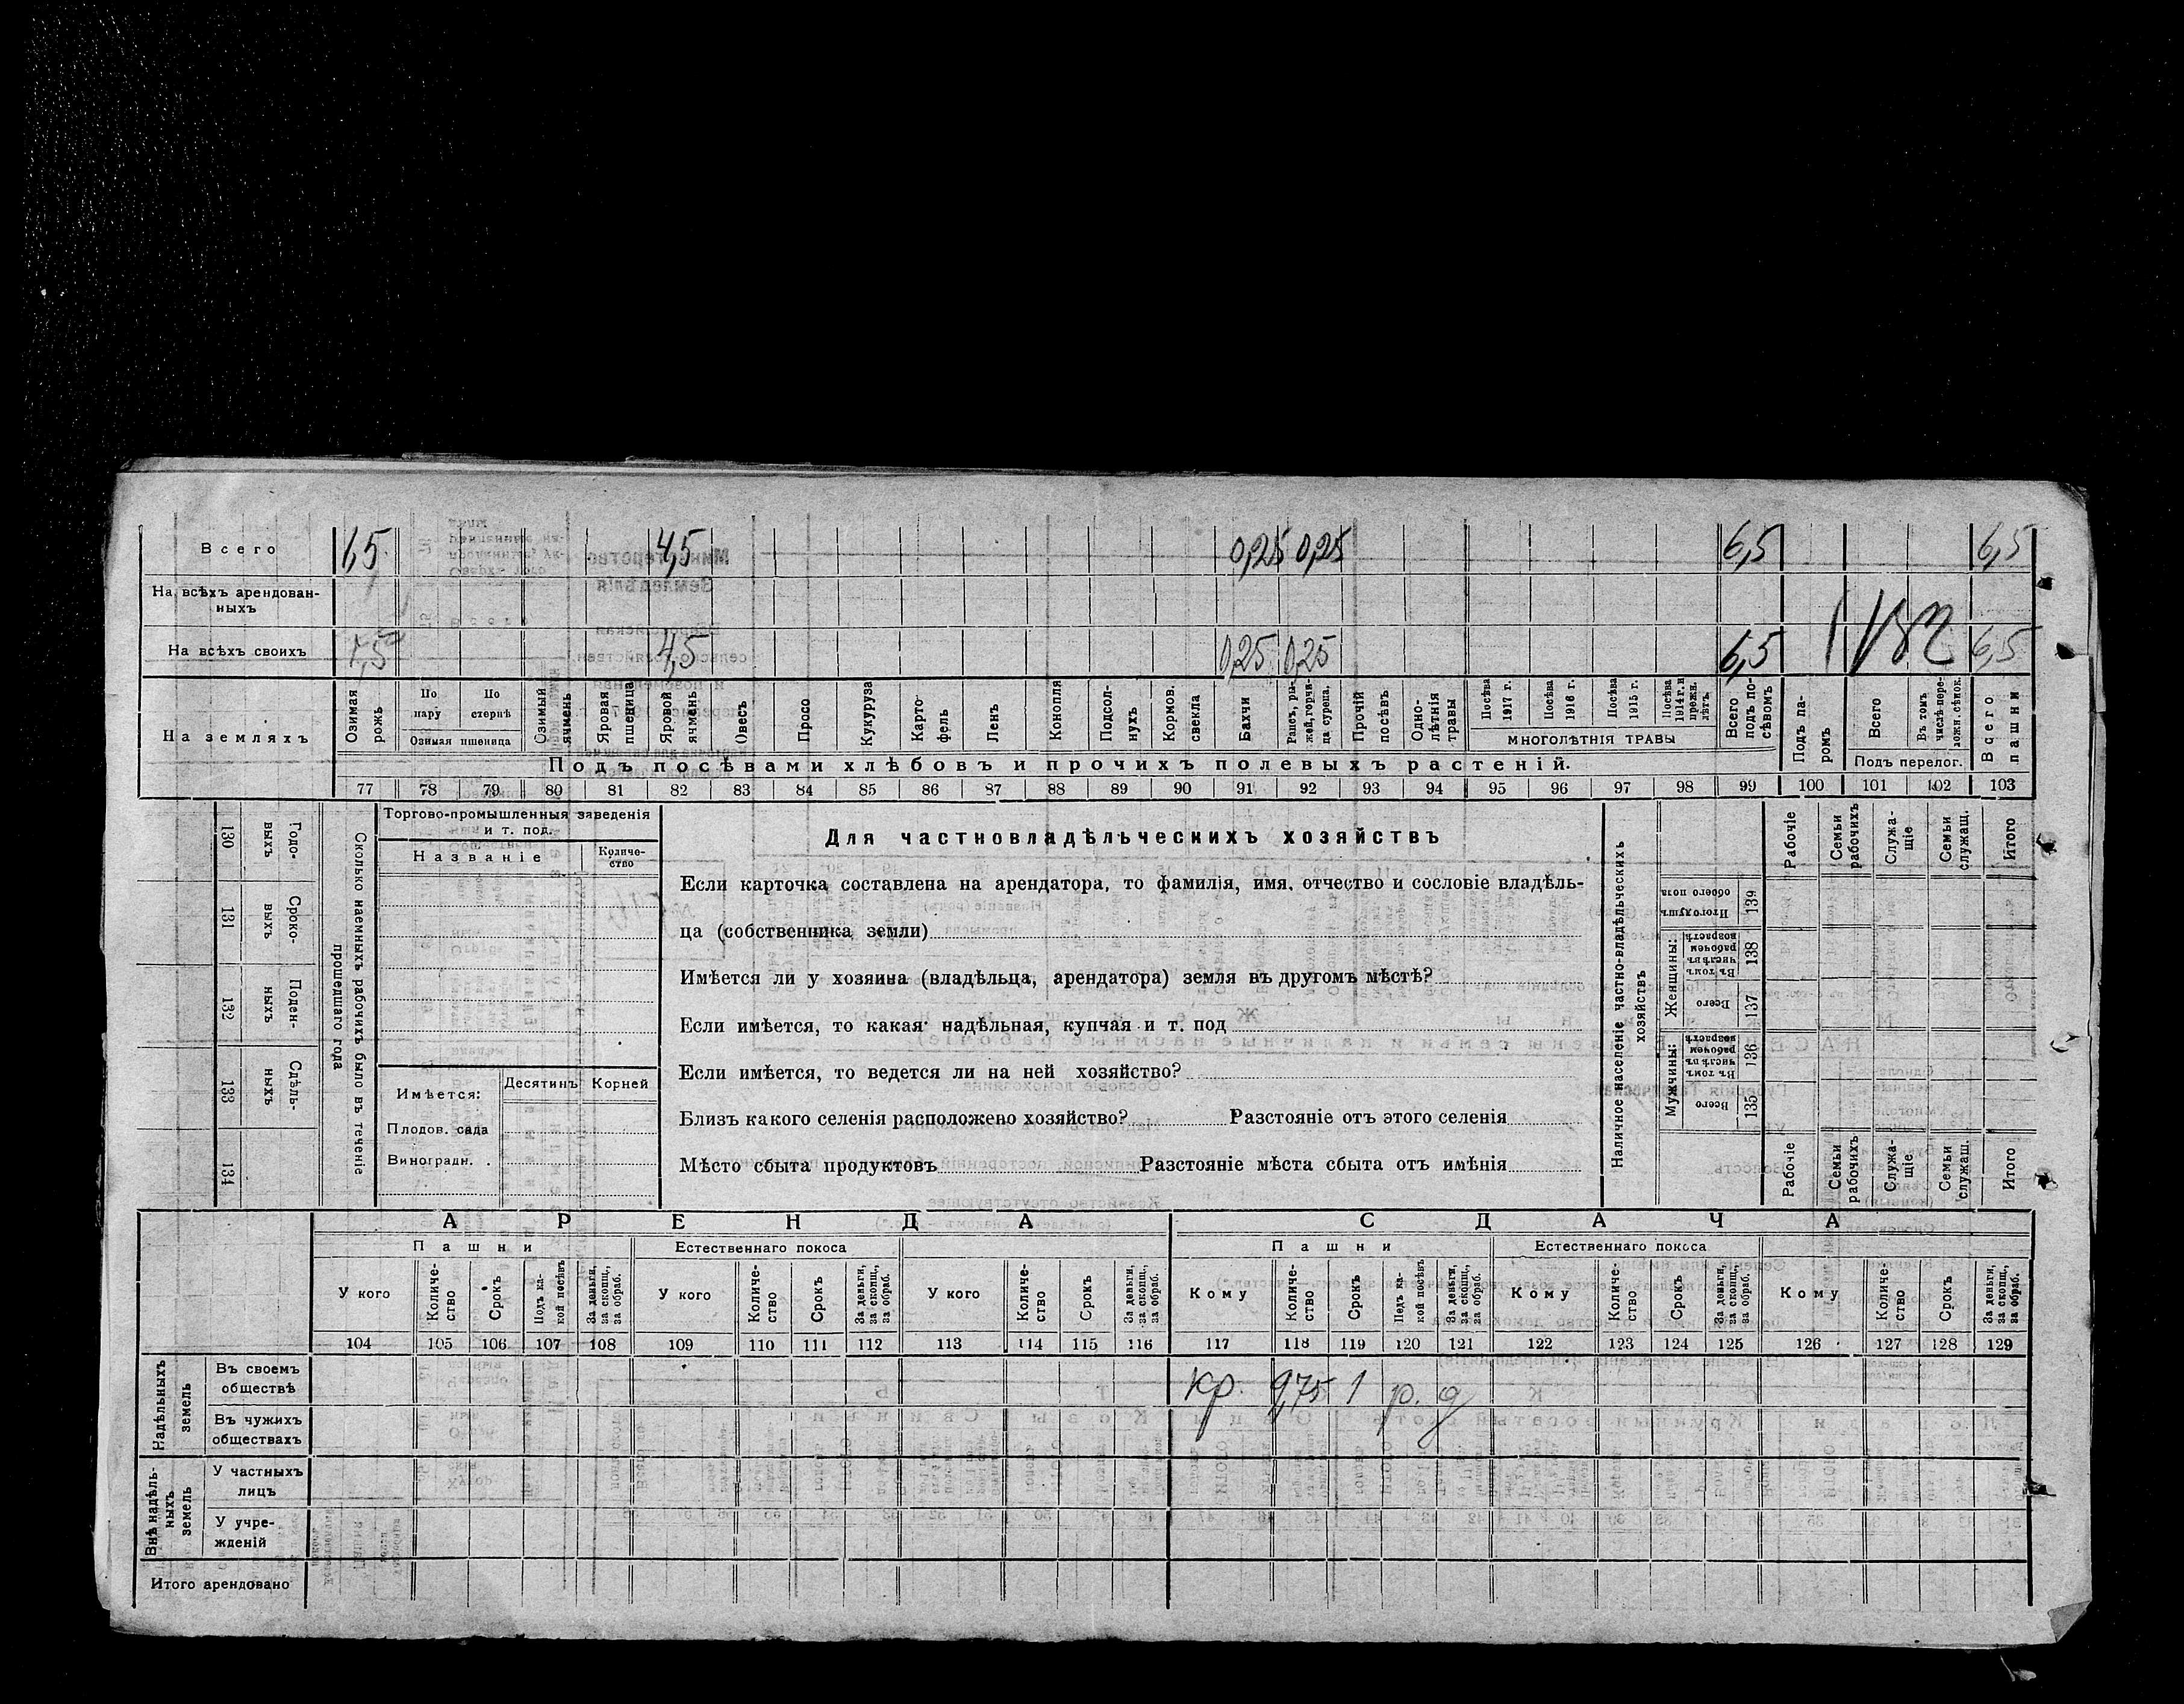 Всего 1,5 4,5 0,25 0,25 6,5 6,5
На всѣхъ арендован-
ныхъ
На всѣхъ своихъ 1,5 4,5 0,25 0,25 6,5 6,5
На земляхъ
Озимая рожь
По пару
По стернѣ
Озимая пшеница
Озимый ячмень
Яровая пшеница
Яровой ячмень
Овесъ
Просо
Кукуруза
Карто-
фель
Ленъ
Конопля
Подсол-
нухъ
Кормов.
свекла
Бахчи
Рапсъ, ры-
жей, горчи-
ца сурепа.
Прочій
посѣвъ
Одно-
лѣтнія
травы
Посѣва
1917 г.
Посѣва
1916 г.
Посѣва
1915 г.
Посѣва
1914 г. и
прежн.
лѣтъ
МНОГОЛѢТНІЯ ТРАВЫ
Всего по-
подъ по-
сѣвомъ
Подъ па-
ромъ
Всего
Въ томъ
числѣ пере-
ложн. сѣнок.
Подъ перелог.
Всего
пашни
Подъ посѣвами хлѣбовъ и прочихъ полевыхъ растеній.
77 78 79 80 81 82 83 84 85 86 87 88 89 90 91 92 93 94 95 96 97 98 99 100 101 102 103
130 Годо-
выхъ
131 Сроко-
выхъ
132 Поден-
ныхъ
133 Сдѣль-
ныхъ
134
Сколько наемныхъ рабочихъ было въ теченіе
прошедшаго года
Торгово-промышленныя заведенія
и т. под.
Названіе
Количе-
ство
Имѣется:
Десятинъ
Корней
Плодов. сада
Виноградн.
Для частновладѣльческихъ хозяйствъ
Если карточка составлена на арендатора, то фамилія, имя, отчество и сословіе владѣль-
ца (собственника земли)
Имѣется ли у хозяина (владѣльца, арендатора) земля въ другомъ мѣстѣ?
Если имѣется, то какая: надѣльная, купчая и т. под
Если имѣется, то ведется ли на ней хозяйство?
Близъ какого селенія расположено хозяйство? Разстояніе отъ этого селенія
Мѣсто сбыта продуктовъ Разстояніе мѣста сбыта отъ имѣнія
Наличное населеніе частно-владѣльческихъ
хозяйствъ
Итого душъ
обоего пола
139
Женщины:
Въ томъ
числѣ въ
рабочем
возрастѣ
138
Всего
137
Мужчины:
Въ томъ
числѣ въ
рабочем
возрастѣ
136
Всего
135
Рабочіе
Семьи
рабочихъ
Служа-
щіе
Семьи
служащ.
Итого
Рабочіе
Семьи
рабочихъ
Служа-
щіе
Семьи
служащ.
Итого
АРЕНДА
СДАЧА
Пашни
Естественнаго покоса
Пашни
Естественнаго покоса
У кого
Количе-
ство
Срокъ
Подъ ка-
кой посѣвъ
За деньги,
за скопщ.,
за обраб.
У кого
Количе-
ство
Срокъ
За деньги,
за скопщ.,
за обраб.
У кого
Количе-
ство
Срокъ
За деньги,
за скопщ.,
за обраб.
Кому
Количе-
ство
Срокъ
Подъ ка-
кой посѣвъ
За деньги,
за скопщ.,
за обраб.
Кому
Количе-
ство
Срокъ
За деньги,
за скопщ.,
за обраб.
Кому
Количе-
ство
Срокъ
За деньги,
за скопщ.,
за обраб.
104 105 106 107 108 109 110 111 112 113 114 115 116 117 118 119 120 121 122 123 124 125 126 127 128 129
Надѣльныхъ
земель
Въ своемъ
обществѣ
кр. 9,75 1 р. д
Въ чужихъ
обществахъ
Внѣ надѣль-
ныхъ
земель
У частныхъ
лицъ
У учре-
жденій
Итого арендовано